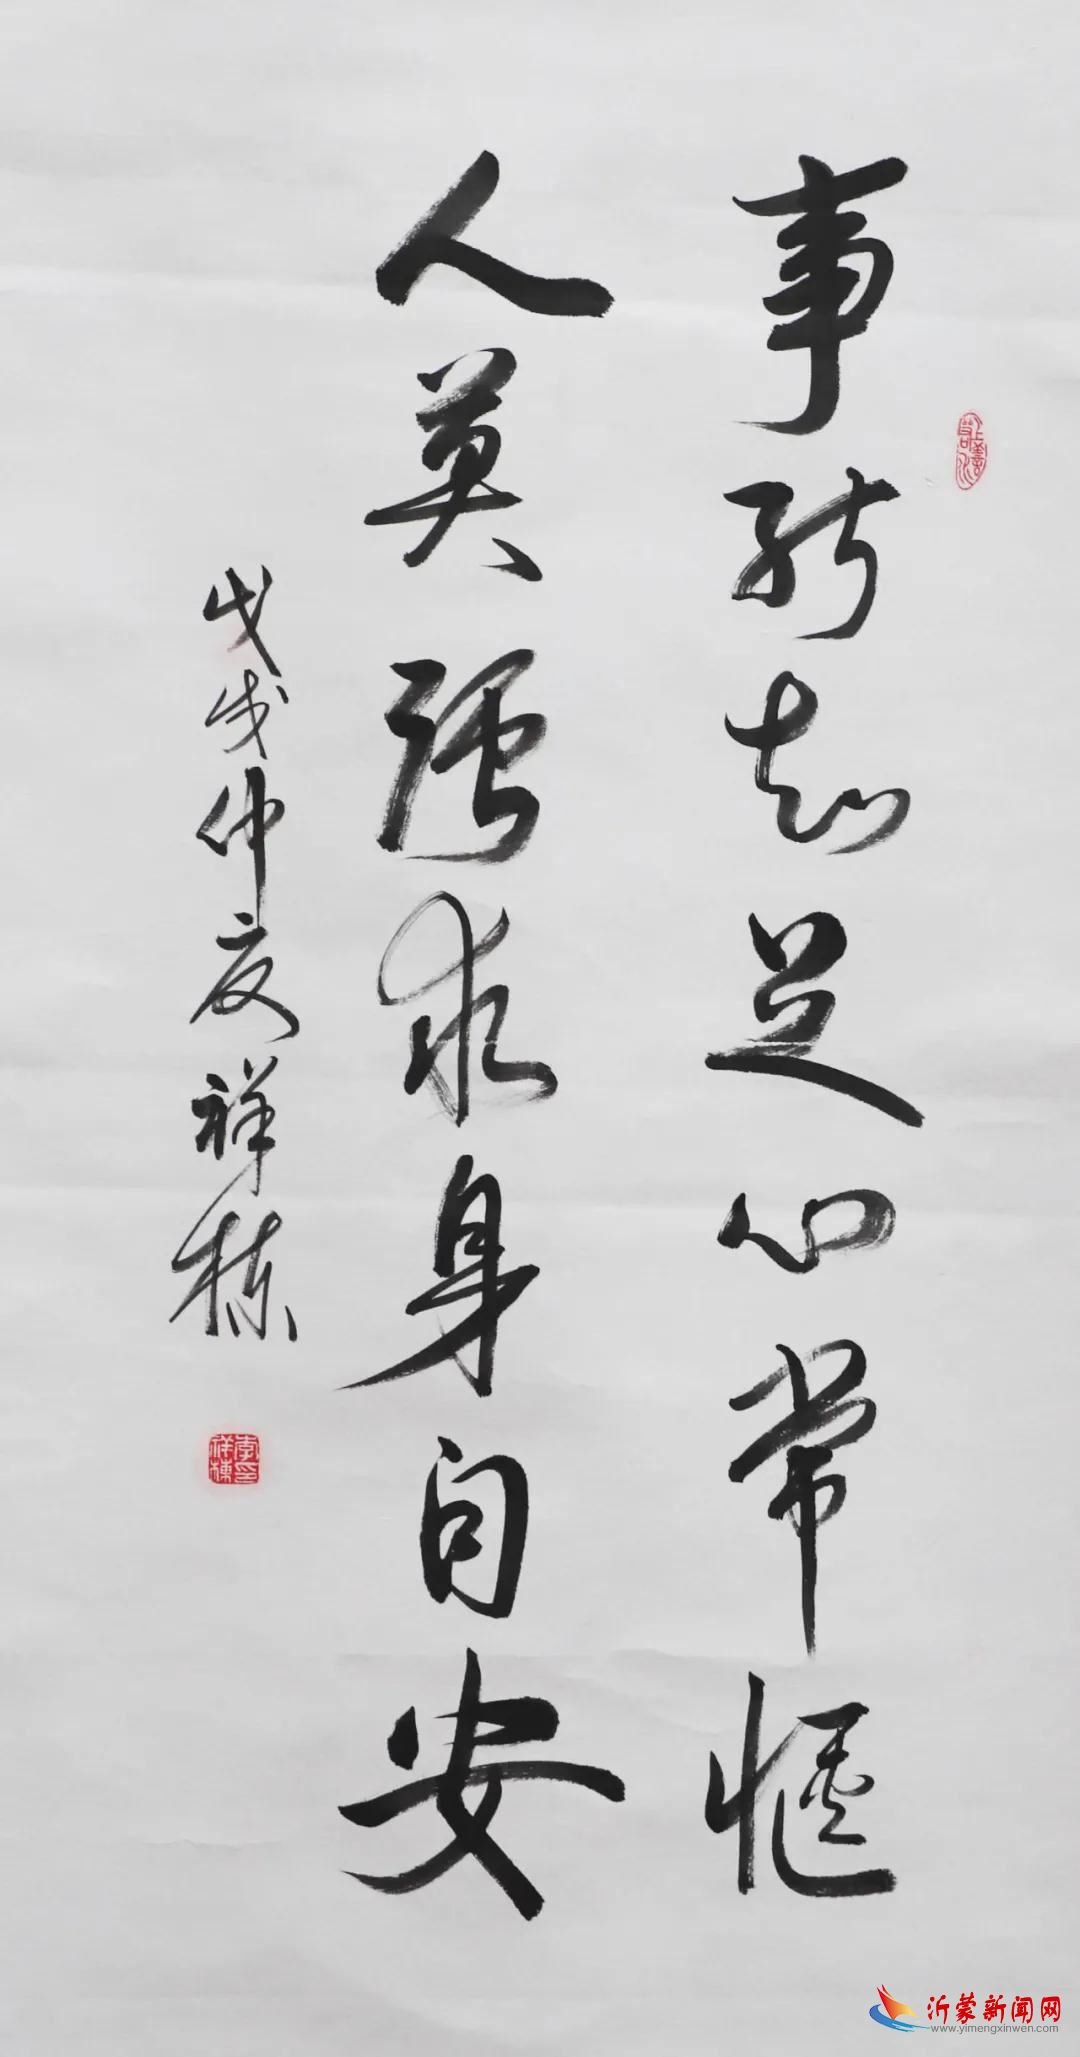 事能知足心常惬
人莫强求身自安
戊戌仲夏祥栋
上善若水
李祥栋印
沂蒙新闻网
www.yimengxinwen.com